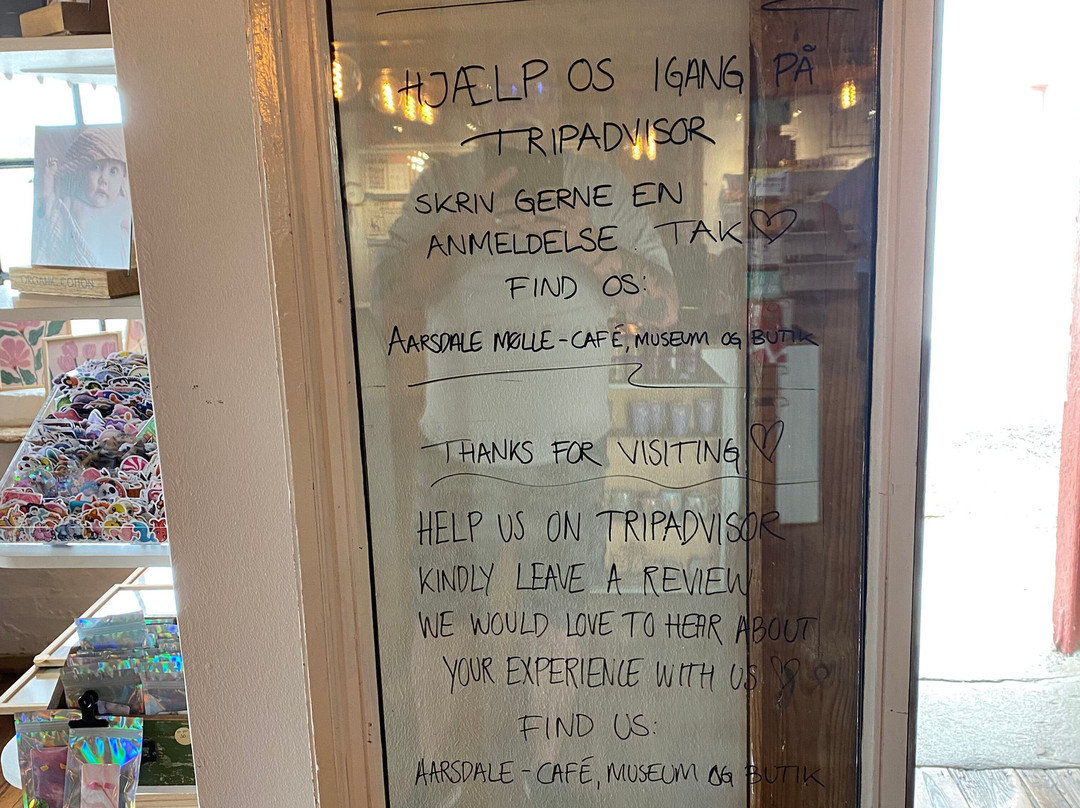 HJÆLP OS IGANG PÅ
TRIPADVISOR
SKRIV GERNE EN
ANMELDELSE. TAK♡
FIND OS:
AARSDALE MØLLE-CAFÉ, MUSEUM OG BUTIK
THANKS FOR VISITING♡
HELP US ON TRIPADVISOR
KINDLY LEAVE A REVIEW
WE WOULD LOVE TO HEAR ABOUT
YOUR EXPERIENCE WITH US
FIND US:
AARSDALE-CAFÉ, MUSEUM OG BUTIK
ORGANIC COTTON